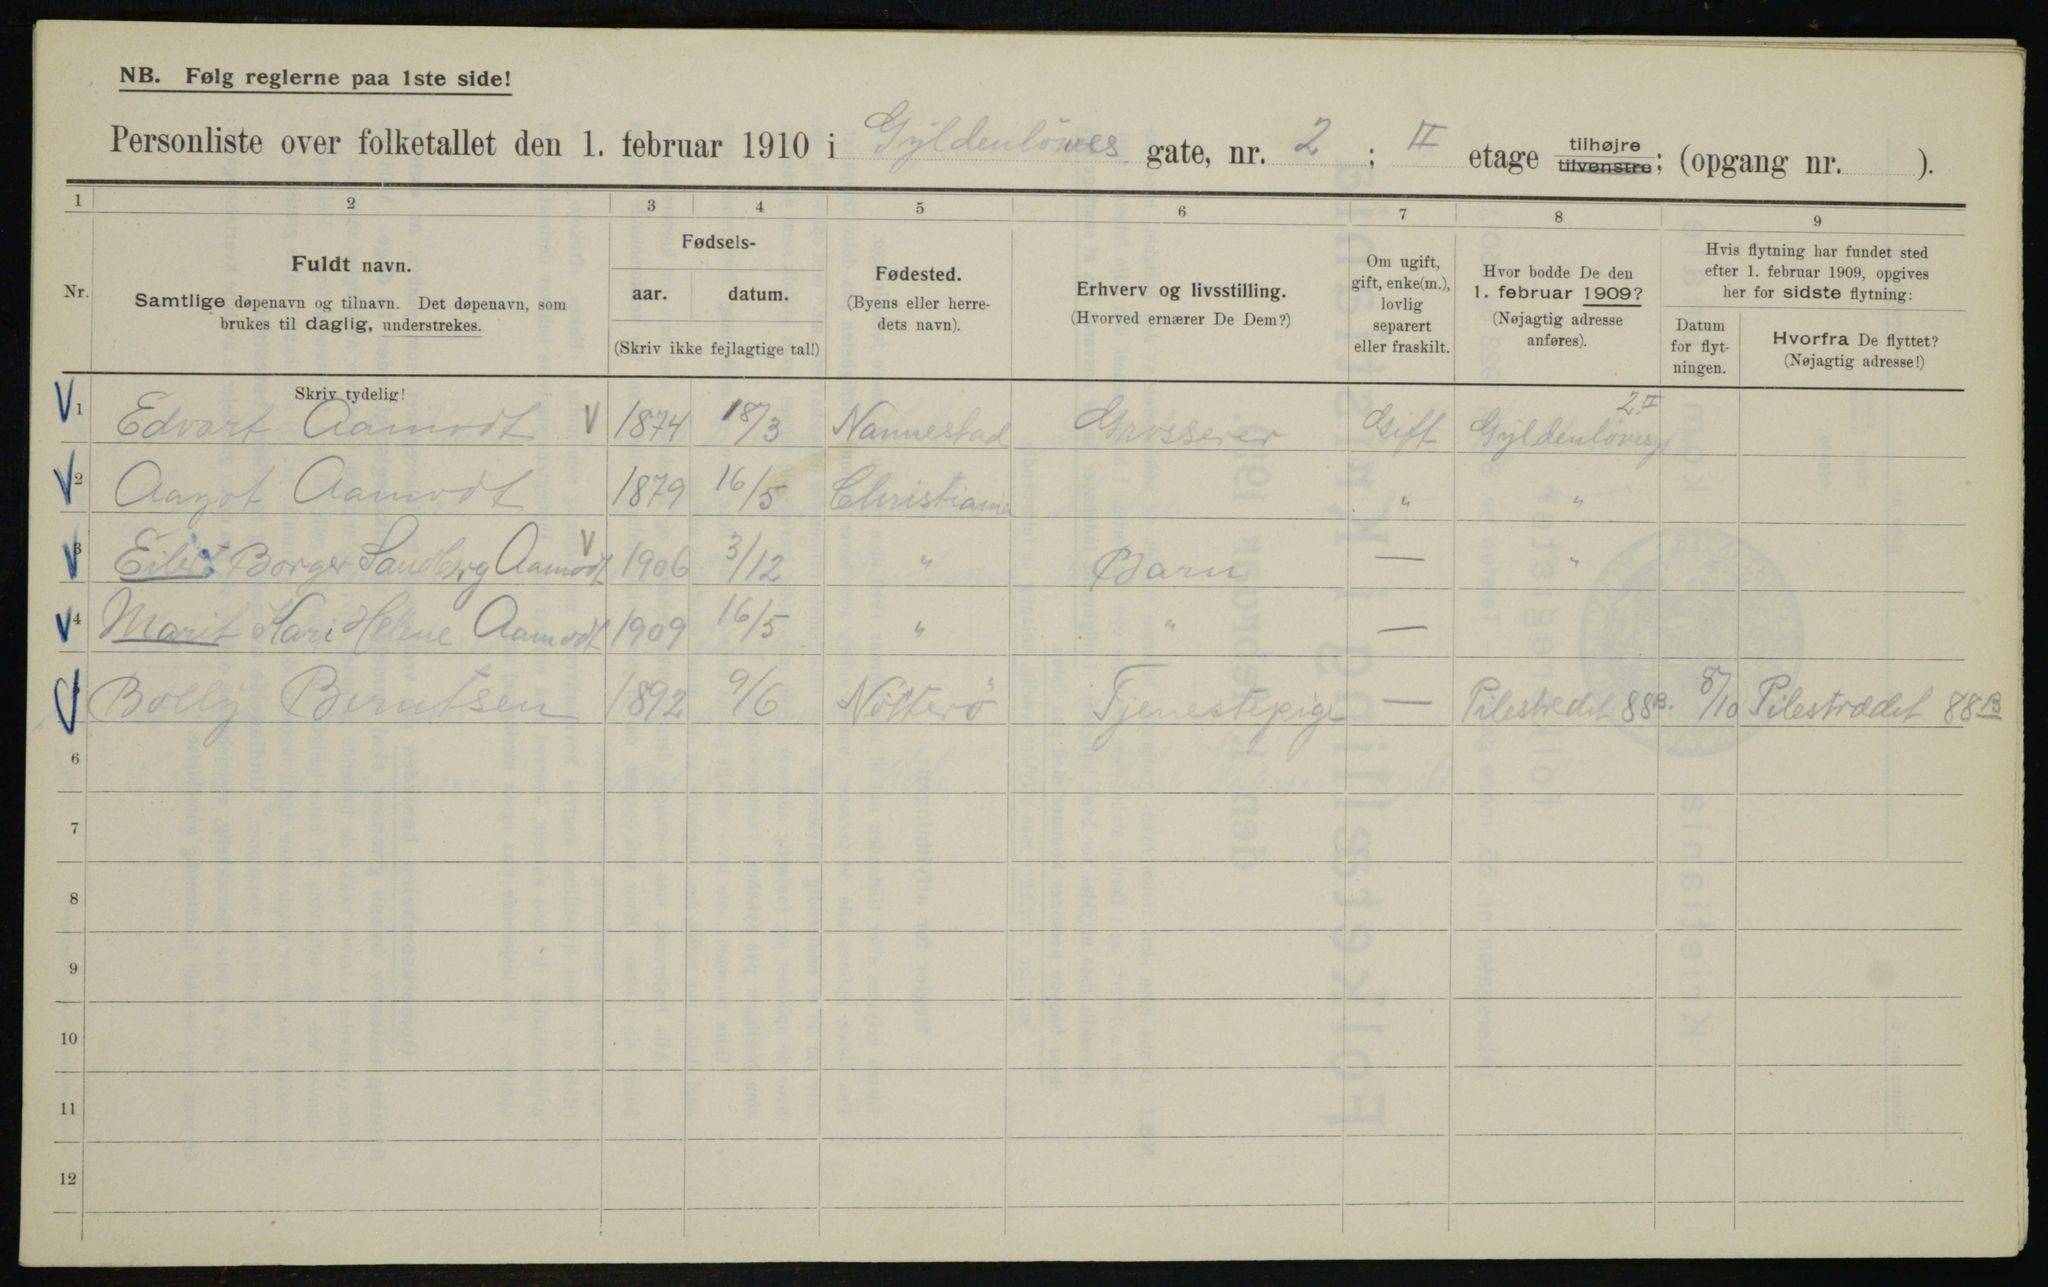 NB. Følg reglerne paa 1ste side!
Personliste over folketallet den 1. februar 1910 i Gyldenløves gate, nr. 2 ; II etage tilhøjre tilvenstre; (opgang nr. ).
1 2 3 4 5 6 7 8 9
Nr.
Fuldt navn.
Samtlige døpenavn og tilnavn. Det døpenavn, som
brukes til daglig, understrekes.
Fødsels-
aar. datum.
(Skriv ikke fejlagtige tal!)
Fødested.
(Byens eller herre-
dets navn).
Erhverv og livsstilling.
(Hvorved ernærer De Dem?)
Om ugift,
gift, enke(m.),
lovlig
separert
eller fraskilt.
Hvor bodde De den
1. februar 1909?
(Nøjagtig adresse
anføres).
Hvis flytning har fundet sted
efter 1. februar 1909, opgives
her for sidste flytning:
Datum
for flyt-
ningen.
Hvorfra De flyttet?
(Nøjagtig adresse!)
Skriv tydelig!
V 1 Edvart Aamodt V 1874 18/3 Nannestad Grosserer Gift Gyldenløvesg 2 II
V 2 Aagot Aamodt 1879 16/5 Christiania " "
V 3 Eiler Borger Sandberg Aamodt V 1906 3/12 " Barn — "
V 4 Marit Kari Helene Aamodt 1909 16/5 " " —
Bolly Berntsen 1892 9/6 Nötterö Tjenestepige — Pilestredet 88B. 8/10 Pilestrædet 88B
6
7
8
9
10
11
12